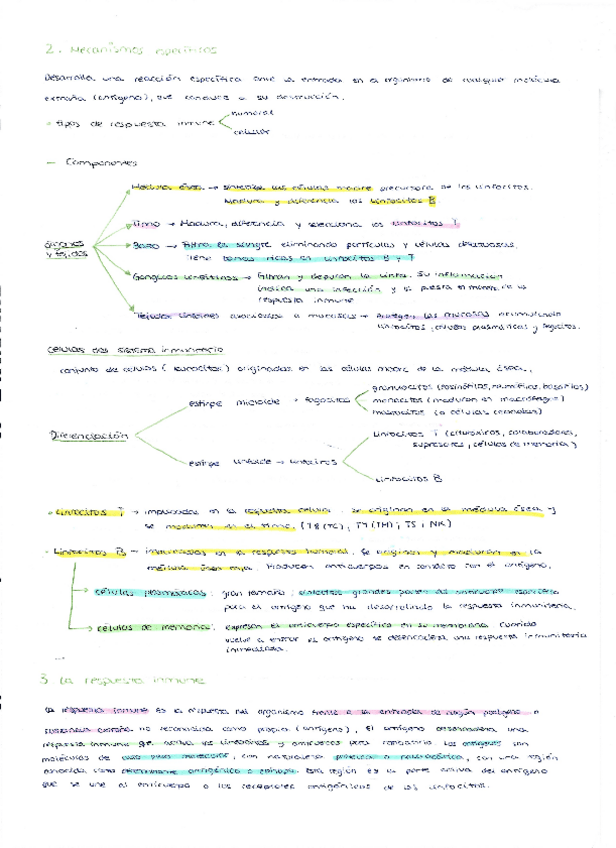 2. Mecanismos específicos
Desarrolla una reacción específica ante la entrada en el organismo de cualquier molécula
extraña (antígeno), que conduce a su destrucción.
- tipos de respuesta inmune
humoral
celular
- Componentes
órganos y tejidos
Médula ósea → sintetiza las células madre precursora de los linfocitos.
Madura y diferencia los linfocitos B
Timo → Madura, diferencia y selecciona los linfocitos T
Bazo → Filtra la sangre eliminando partículas y células defectuosas.
Tiene zonas ricas en linfocitos B y T
Ganglios linfáticos → Filtran y depuran la linfa. Su inflamación
indica una infección y la puesta en marcha de la
respuesta inmune
Tejidos linfoides asociados a mucosas → protegen las mucosas acumulando
linfocitos, células plasmáticas y fagocitos.
Células del sistema inmunitario
conjunto de células (leucocitos) originadas en las células madre de la médula ósea.
Diferenciación
estirpe mieloide → fagocitos
granulocitos (eosinófilos, neutrófilos, basófilos)
monocitos (maduran en macrófagos)
mastocitos (o células cebadas)
estirpe linfoide → linfocitos
linfocitos T (citotóxicos, colaboradores,
supresores, células de memoria)
linfocitos B
- Linfocitos T → implicados en la respuesta celular. Se originan en la médula ósea y
se maduran en el timo. (T8 (TC), T4 (TH), TS, NK)
- Linfocitos B → implicados en la respuesta humoral. Se originan y maduran en la
médula ósea roja. Producen anticuerpos en contacto con el antígeno.
células plasmáticas: gran tamaño, grandes de anticuerpo específico
para el antígeno que ha desarrollado la respuesta inmunitaria.
células de memoria: expresan el anticuerpo específico en su membrana. Cuando
vuelve a entrar el antígeno se desencadena una respuesta inmunitaria
inmediata.
3 La respuesta inmune
La respuesta inmune es la respuesta del organismo frente a la entrada de algún patógeno o
sustancia extraña no reconocida como propia (antígeno). El antígeno desencadena una
respuesta inmune que activa los linfocitos y anticuerpos para combatirlo. Los antígenos son
moléculas de peso molecular, con naturaleza proteica o, con una región
conocida como determinante antigénico o epítopo. Esta región es la parte activa del antígeno
que se une al anticuerpo o los receptores antigénicos de los linfocitos.